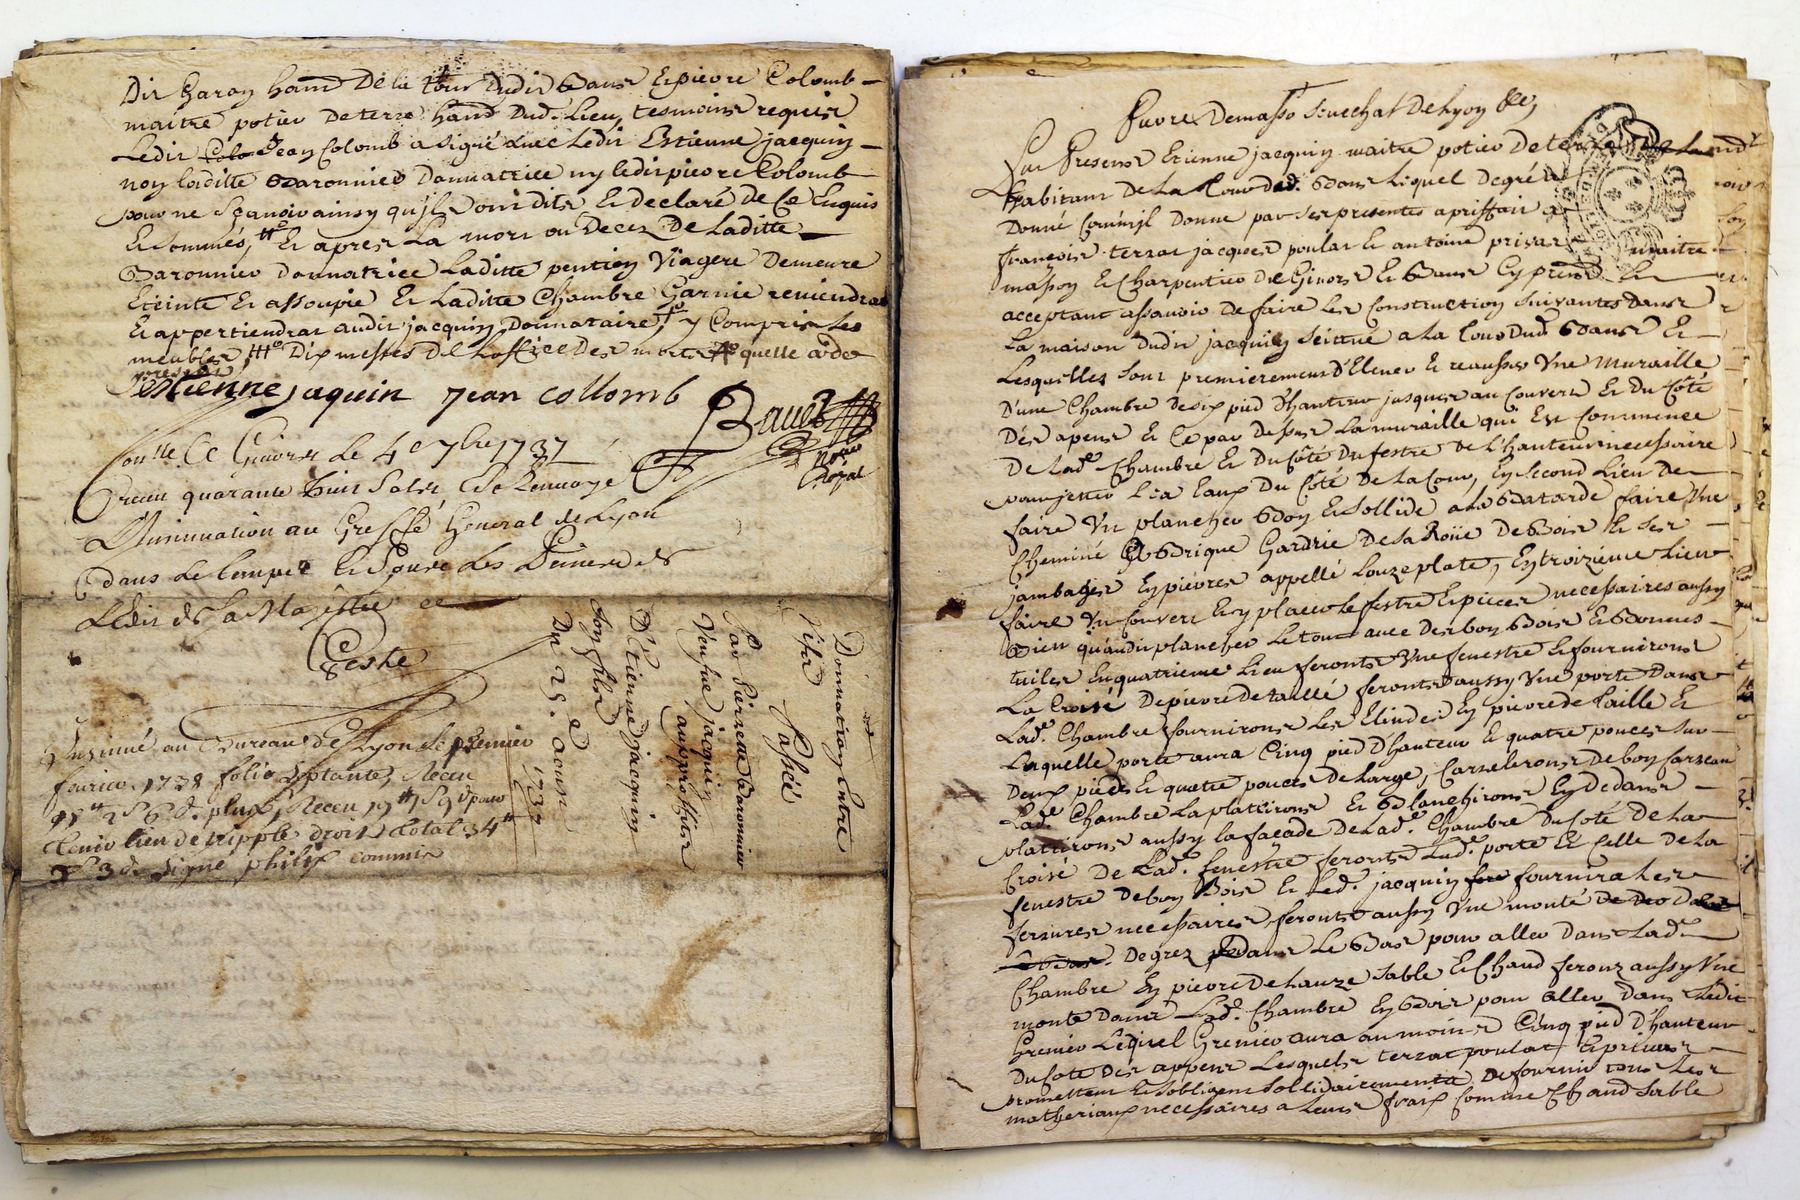 Dit Garon hant De la tour dudit Bans Et pierre Colomb
maitre potier De terre hant Dud. Lieu, tesmoins requis
Ledit Colo Jean Colomb a signé avec Ledit Estienne jacquin
non laditte Baronnier Donnatrice ny ledit pierre Colomb
pour ne sçavoir ainsy qu'ils ont dits Et declaré de Ce Enquis
Et sommés, Et apres La mort ou Decez De Laditte
Baronnier donnatrice Laditte pention Viagere Demeure
Eteinte Et assoupie Et Laditte Chambre Garnie reviendra
Et appertiendrat audit jacquin Donnataire, y Compris Les
meubles, Dix messes De L'office Des morts quelle
Estienne jaquin Jean collomb
Notre
Royal
Con.lle Ce Givors Le 4e 7bre 1737
Receu quarante huit sols, Et Renvoyé
L'insinuation au Greffe General de Lyon
dans Le temps Et Sous Les Peines
L'edit de Sa Majestée
Geste
Insinué au Bureau De Lyon le premier
fevrier 1738 folio Receu
plus Receu
tenir lieu de tripple droit Total 34
3 d. Signé philip commis
Donnation Entre
Vifs Passée
Par Pierrette Baronnier
Veufve jacquin
au proffit
D'Etienne jacquin
son fils
Du 25e aoust
1737
Favre Demasso Senechal De Lyon &c,
Par Presens Etienne jacquin maitre potier De terre
habitant De La Tour Dud. Bans Lequel De gré
Donné Comm'il Donne par Ses presentes a prisfait a
françois terrat jacques poulat Et antoine privat maitre
masson Et Charpentier De Givors Et Bans Cy present Et
acceptant assavoir de faire Les Construction Suivantes Dans
La maison Dudit jacquin Scittuë a La Tour Dud. Bans Et
Lesquelles Sont premierement D'Elever Et reausser Une muraille
D'une Chambre De six pied D'hauteur jusques au Couvert Et Du Côté
Des apens Et Ce par Dessus La muraille qui Est Commencé
De Lad.e Chambre Et Du Côté Du festre De L'hauteur necessaire
pour jetter Les Eaux Du Côté De La Cour, En Second Lieu De
faire Un plancher Bon Et Sollide a la Batarde faire Une
Cheminé De Brique Garnie De Sa Roüe De Bois Et Ses
jambages En pierres appellé Louze plate, En troiziéme Lieu
faire Un Couvert Et y placer Le festre Et pieces necessaires aussy
Bien qu'audit plancher Le tout avec Des bon Bois Et Bonnes
tuiles En quatrieme Lieu feronts Une fenestre Et fournironts
La Croisé De pierre De taillé feronts aussy Une porte Dans
Lad.e Chambre fournironts Les Elindes En pierre de Taille Et
Laquelle porte aura Cinq pied D'hauteur Et quatre pouces Sur
Deux pieds Et quatre pouces De Large, Carreleronts De bon
Lad.e Chambre La platrironts Et Blanchironts En Dedans
platrironts aussy la façade De Lad.e Chambre Du Coté De La
Croisé De Lad.e fenestre feronts Lad.e porte Et Celle De La
fenestre De bon Bois Et Led.t jacquin fournira Les
ferrures necessaires feronts aussy Une monté
Degrez Dans Le Bas pour aller Dans Lad.e
Chambre En pierre De Lauze Sable Et Chaud feront aussy Une
monté Dans Lad.e Chambre En Bois pour aller Dans Ledit
Grenier Lequel Grenier aura au moins Cinq pied D'hauteur
Du Coté Des appens Lesquels terrat poulat Et privat
promettent Et S'obligent Sollidairement De fournir tous Les
matheriaux necessaires a Leurs fraix Comme Chaud Sable